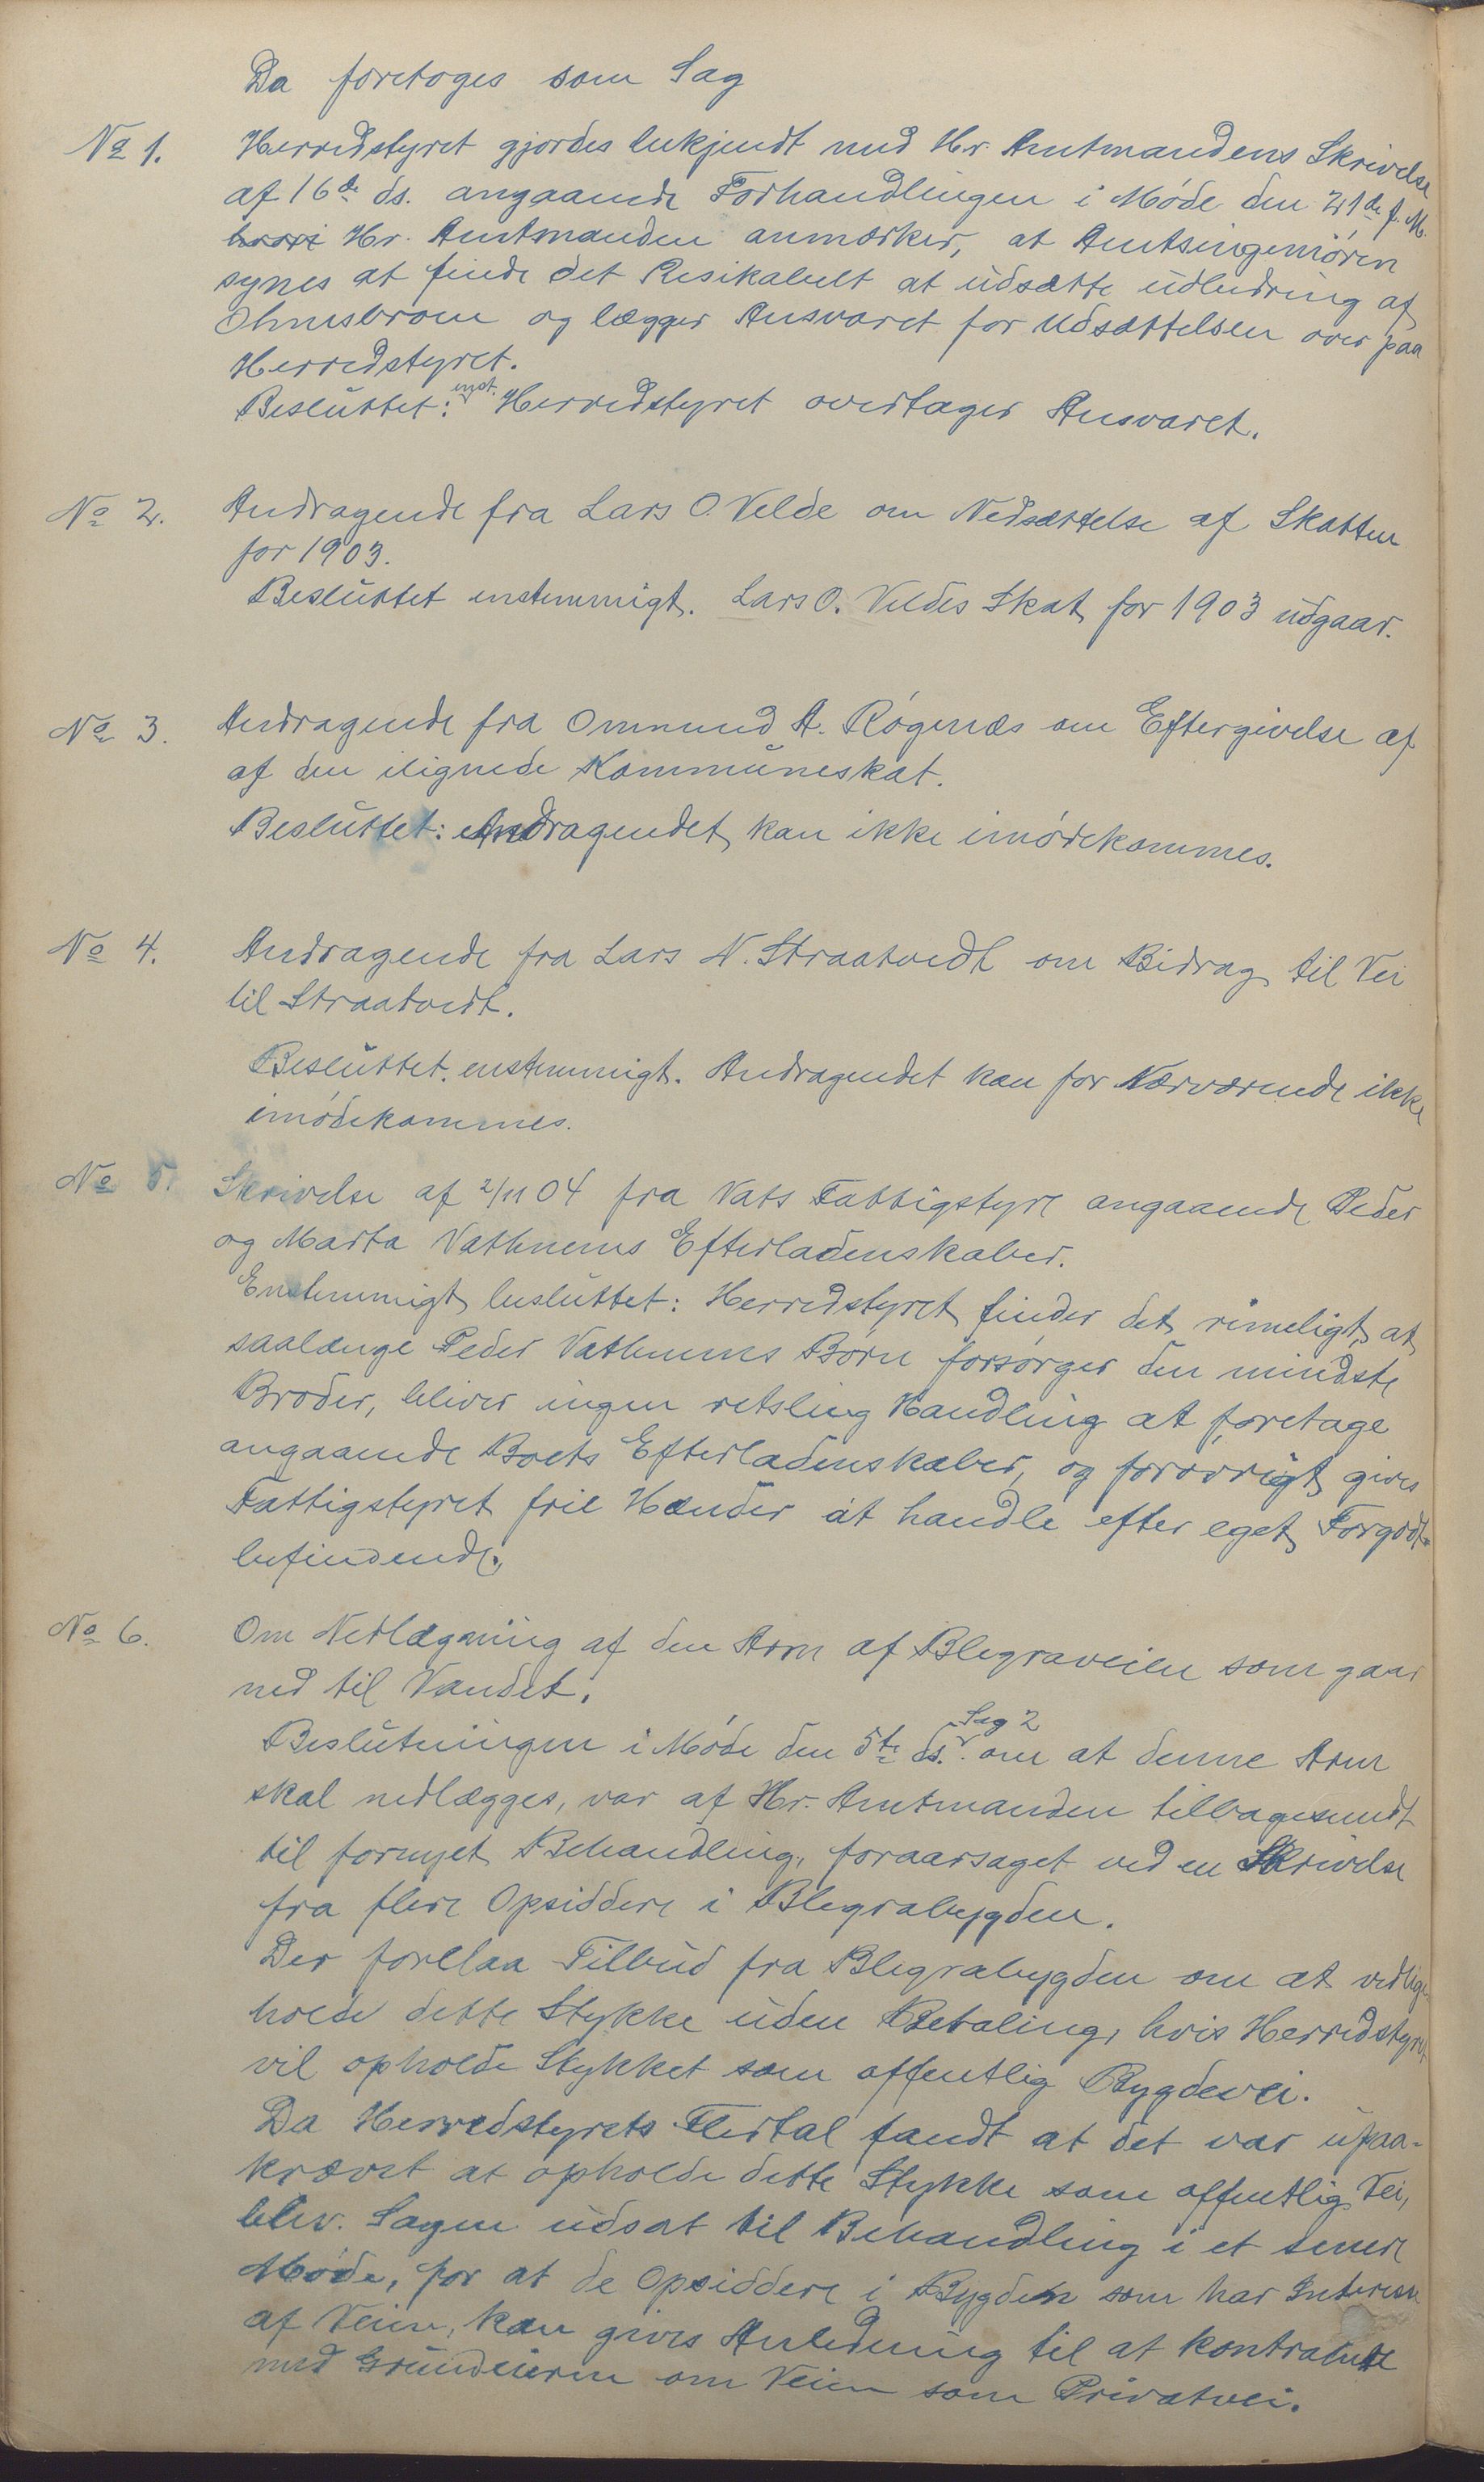 Da foretoges som Sag
No 1. Herredstyret gjordes bekjendt med Hr. Amtmandens Skrivelse
af 16de ds. angaaende Forhandlingen i Møde den 21de f. M.
hvori Hr. Amtmanden anmærker, at Amtsingeniøren
synes at finde det Resikabelt at udsætte udbedring af
Ohmsbroen og lægger Ansvaret for Udsættelsen over paa
Herredstyret.
Besluttet: enst. Herredstyret overtager Ansvaret.
No 2. Andragende fra Lars O. Velde om Nedsættelse af Skatten
for 1903.
Besluttet enstemmigt. Lars O. Veldes Skat for 1903 udgaar.
No 3. Andragende fra Ommund A. Røgenæs om Eftergivelse af
af den ilignede Kommuneskat.
Besluttet: Andragendet kan ikke imødekommes.
No 4. Andragende fra Lars N. Straatvedt om Bidrag til Vei
til Straatvedt.
Besluttet. enstemmigt. Andragendet kan for Nærværende ikke
imødekommes.
No 5. Skrivelse af 2/11 04 fra Vats Fattigstyre angaaende Peder
og Marta Vathnems Efterladenskaber.
Enstemmigt besluttet: Herredstyret finder det rimeligt, at
saalænge Peder Vathnems Børn forsørger den mindste
Broder, bliver ingen retslig Handling at foretage
angaaende Boets Efterladenskaber, og forøvrigt gives
Fattigstyret frie Hænder at handle efter eget Forgodt-
befindende.
No 6. Om Nedlægning af den Arm af Blegraveien som gaar
ned til Vandet.
Beslutningen i Møde den 5te ds. Sag 2 om at denne Arm
skal nedlægges, var af Hr. Amtmanden tilbagesendt
til fornyet Behandling, foraarsaget ved en Skrivelse
fra flere Opsiddere i Blegrabygden.
Der forelaa Tilbud fra Blegrabygden om at vedlige-
holde dette Stykke uden Betaling, hvis Herredstyret
vil opholde Stykket som offentlig Bygdevei.
Da Herredstyrets Flertal fandt at det var upaa-
krævet at opholde dette Stykke som offentlig Vei,
blev. Sagen udsat til Behandling i et senere
Møde, for at de Opsiddere i Bygden som har Interesse
af Veien, kan gives Anledning til at kontrahere
med Grundeieren om Veien som Privatvei.